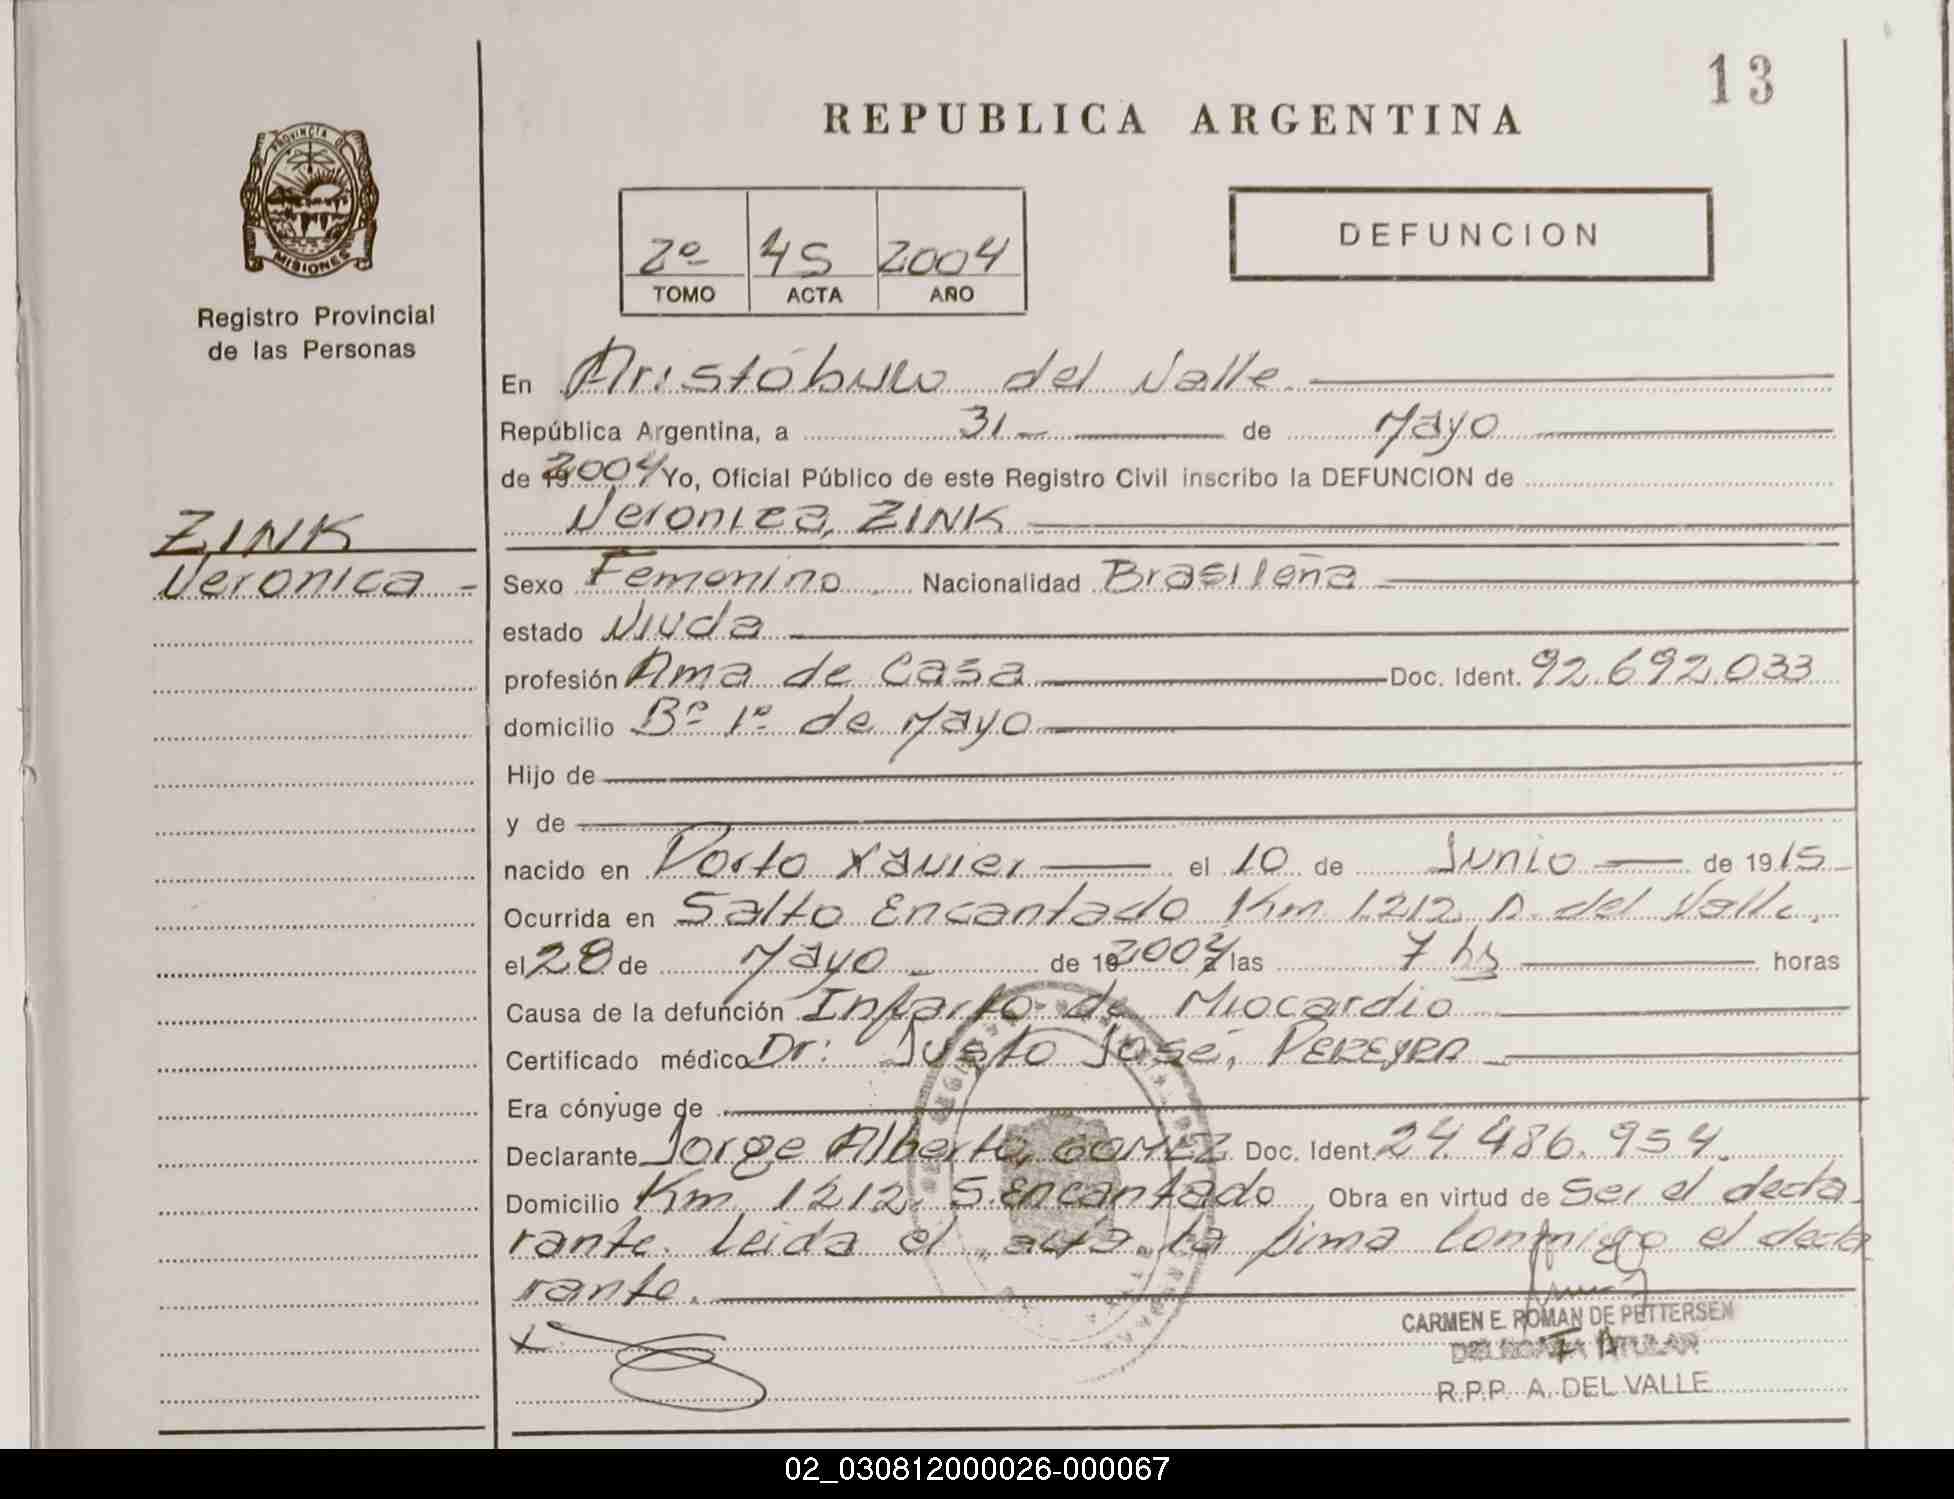 13
REPUBLICA ARGENTINA
PROVINCIA DE
MISIONES
Registro Provincial
de las Personas
2º 45 2004
TOMO ACTA AÑO
DEFUNCION
En Aristóbulo del Valle.
República Argentina, a 31 de Mayo
de 2004 Yo, Oficial Público de este Registro Civil inscribo la DEFUNCION de
Veronica, ZINK
ZINK
Veronica -
Sexo Femenino Nacionalidad Brasileña
estado Viuda
profesión Ama de Casa Doc. Ident. 92.692.033
domicilio Bº 1º de Mayo
Hijo de
y de
nacido en Porto Xavier el 10 de Junio de 1915
Ocurrida en Salto Encantado Km 1212 A. del Valle.
el 28 de Mayo de 192004 a las 7 hs horas
Causa de la defunción Infarto de Miocardio
Certificado médico Dr: Justo José, PEREYRA
Era cónyuge de
Declarante Jorge Alberto, GOMEZ Doc. Ident. 24.486.954.
Domicilio Km. 1212. S. Encantado Obra en virtud de Ser el decla
rante. Leida el acta la firma conmigo el decla
rante.
x
CARMEN E. ROMAN DE PETTERSEN
DELEGADA TITULAR
R.P.P. A. DEL VALLE
02_030812000026-000067